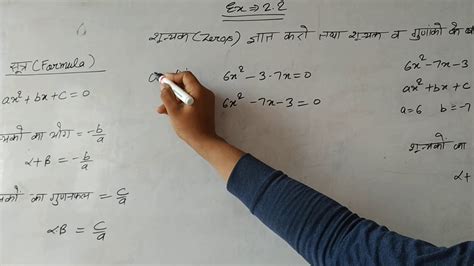 Ex ⇒ 2.2
शून्यक (Zeros) ज्ञात करो तथा शून्यक व गुणांको के
सूत्र (Formula)
ax² + bx + c = 0
का योग = -b/a
α+β = -b/a
का गुणनफल = c/a
αβ = c/a
6x² - 3 - 7x = 0
6x² - 7x - 3 = 0
6x² - 7x - 3
ax² + bx +
a = 6 b = -7
शून्यको का
α+